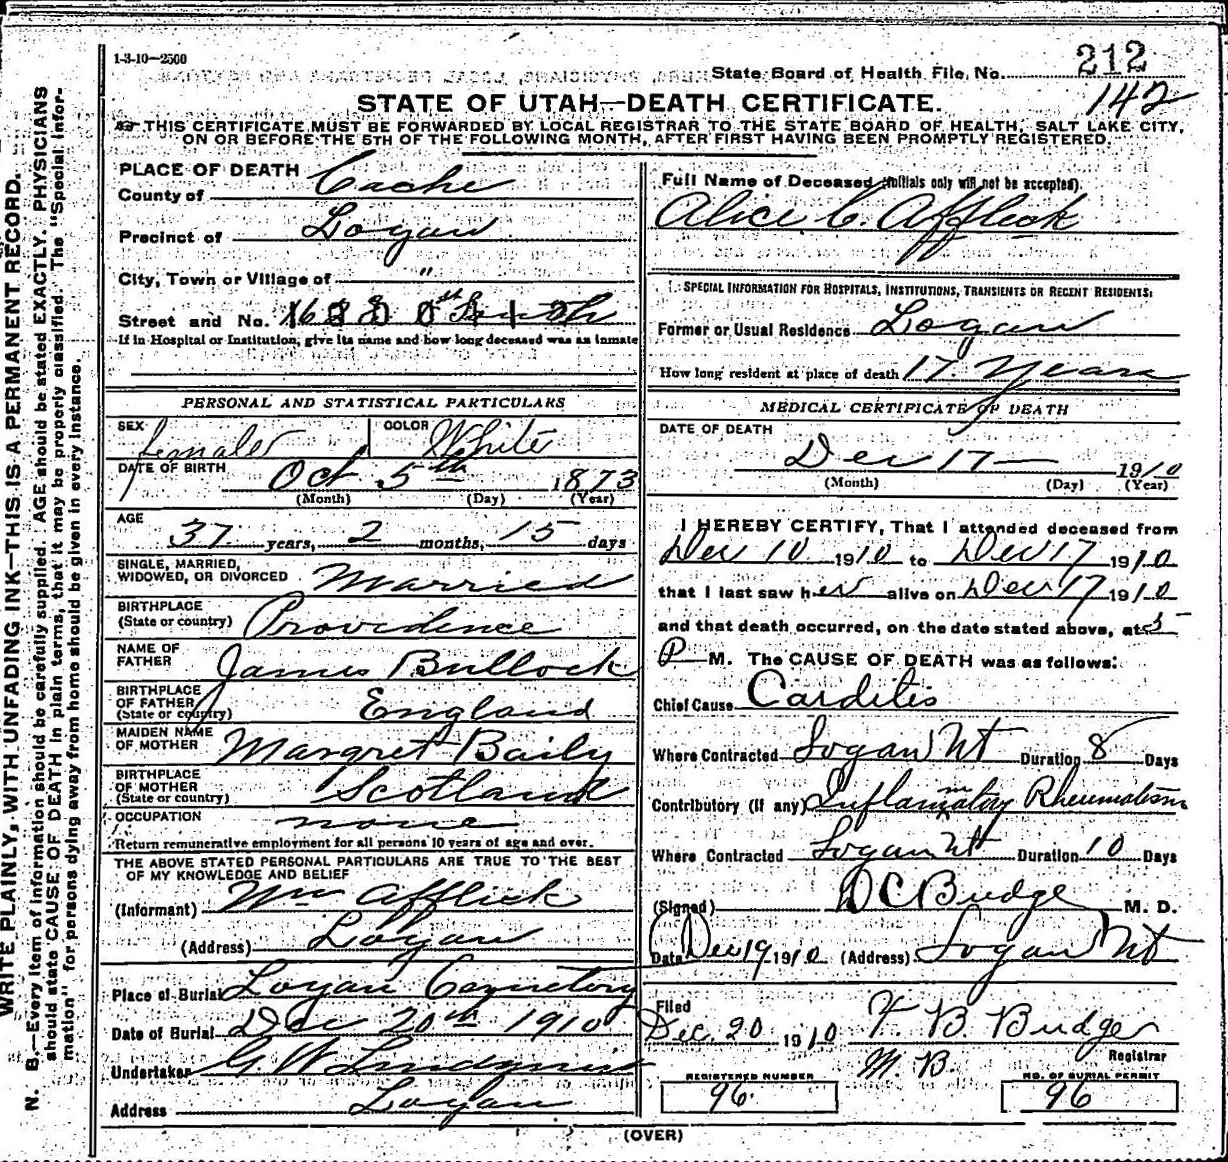 1-3-10—2500
State Board of Health File No. 212
142
STATE OF UTAH—DEATH CERTIFICATE.
THIS CERTIFICATE MUST BE FORWARDED BY LOCAL REGISTRAR TO THE STATE BOARD OF HEALTH, SALT LAKE CITY,
ON OR BEFORE THE 5TH OF THE FOLLOWING MONTH, AFTER FIRST HAVING BEEN PROMPTLY REGISTERED.
WRITE PLAINLY, WITH UNFADING INK—THIS IS A PERMANENT RECORD.
N. B.—Every item of information should be carefully supplied. AGE should be stated EXACTLY. PHYSICIANS
should state CAUSE OF DEATH in plain terms, that it may be properly classified. The "Special Infor-
mation" for persons dying away from home should be given in every instance.
PLACE OF DEATH
County of Cache
Precinct of Logan
City, Town or Village of "
Street and No.
If in Hospital or Institution, give its name and how long deceased was an inmate
PERSONAL AND STATISTICAL PARTICULARS
SEX female COLOR White
DATE OF BIRTH Oct 5th 1873
(Month) (Day) (Year)
AGE 37 years, 2 months, 15 days
SINGLE, MARRIED,
WIDOWED, OR DIVORCED Married
BIRTHPLACE
(State or country) Providence
NAME OF
FATHER James Bullock
BIRTHPLACE
OF FATHER
(State or country) England
MAIDEN NAME
OF MOTHER Margret Baily
BIRTHPLACE
OF MOTHER
(State or country) Scotland
OCCUPATION none
Return remunerative employment for all persons 10 years of age and over.
THE ABOVE STATED PERSONAL PARTICULARS ARE TRUE TO THE BEST
OF MY KNOWLEDGE AND BELIEF
(Informant) Wm Afflick
(Address) Logan
Place of Burial Logan Cemetery
Date of Burial Dec 20th 1910
Undertaker G. W. Lindquist
Address Logan
Full Name of Deceased (Initials only will not be accepted).
Alice C. Affleck
SPECIAL INFORMATION FOR HOSPITALS, INSTITUTIONS, TRANSIENTS OR RECENT RESIDENTS:
Former or Usual Residence Logan
How long resident at place of death 17 Years
MEDICAL CERTIFICATE OF DEATH
DATE OF DEATH
Dec 17 — 1910
(Month) (Day) (Year)
I HEREBY CERTIFY, That I attended deceased from
Dec 10 1910 to Dec 17 1910
that I last saw her alive on Dec 17 1910
and that death occurred, on the date stated above, at 5
P M. The CAUSE OF DEATH was as follows:
Chief Cause Carditis
Where Contracted Logan Ut Duration 8 Days
Contributory (if any) Inflammatory Rheumatism
Where Contracted Logan Ut Duration 10 Days
(Signed) D C Budge M. D.
Date Dec 19 1910 (Address) Logan Ut
Filed
Dec. 20 1910 F. B. Budge
M. B. Registrar
REGISTERED NUMBER NO. OF BURIAL PERMIT
96 96
(OVER)